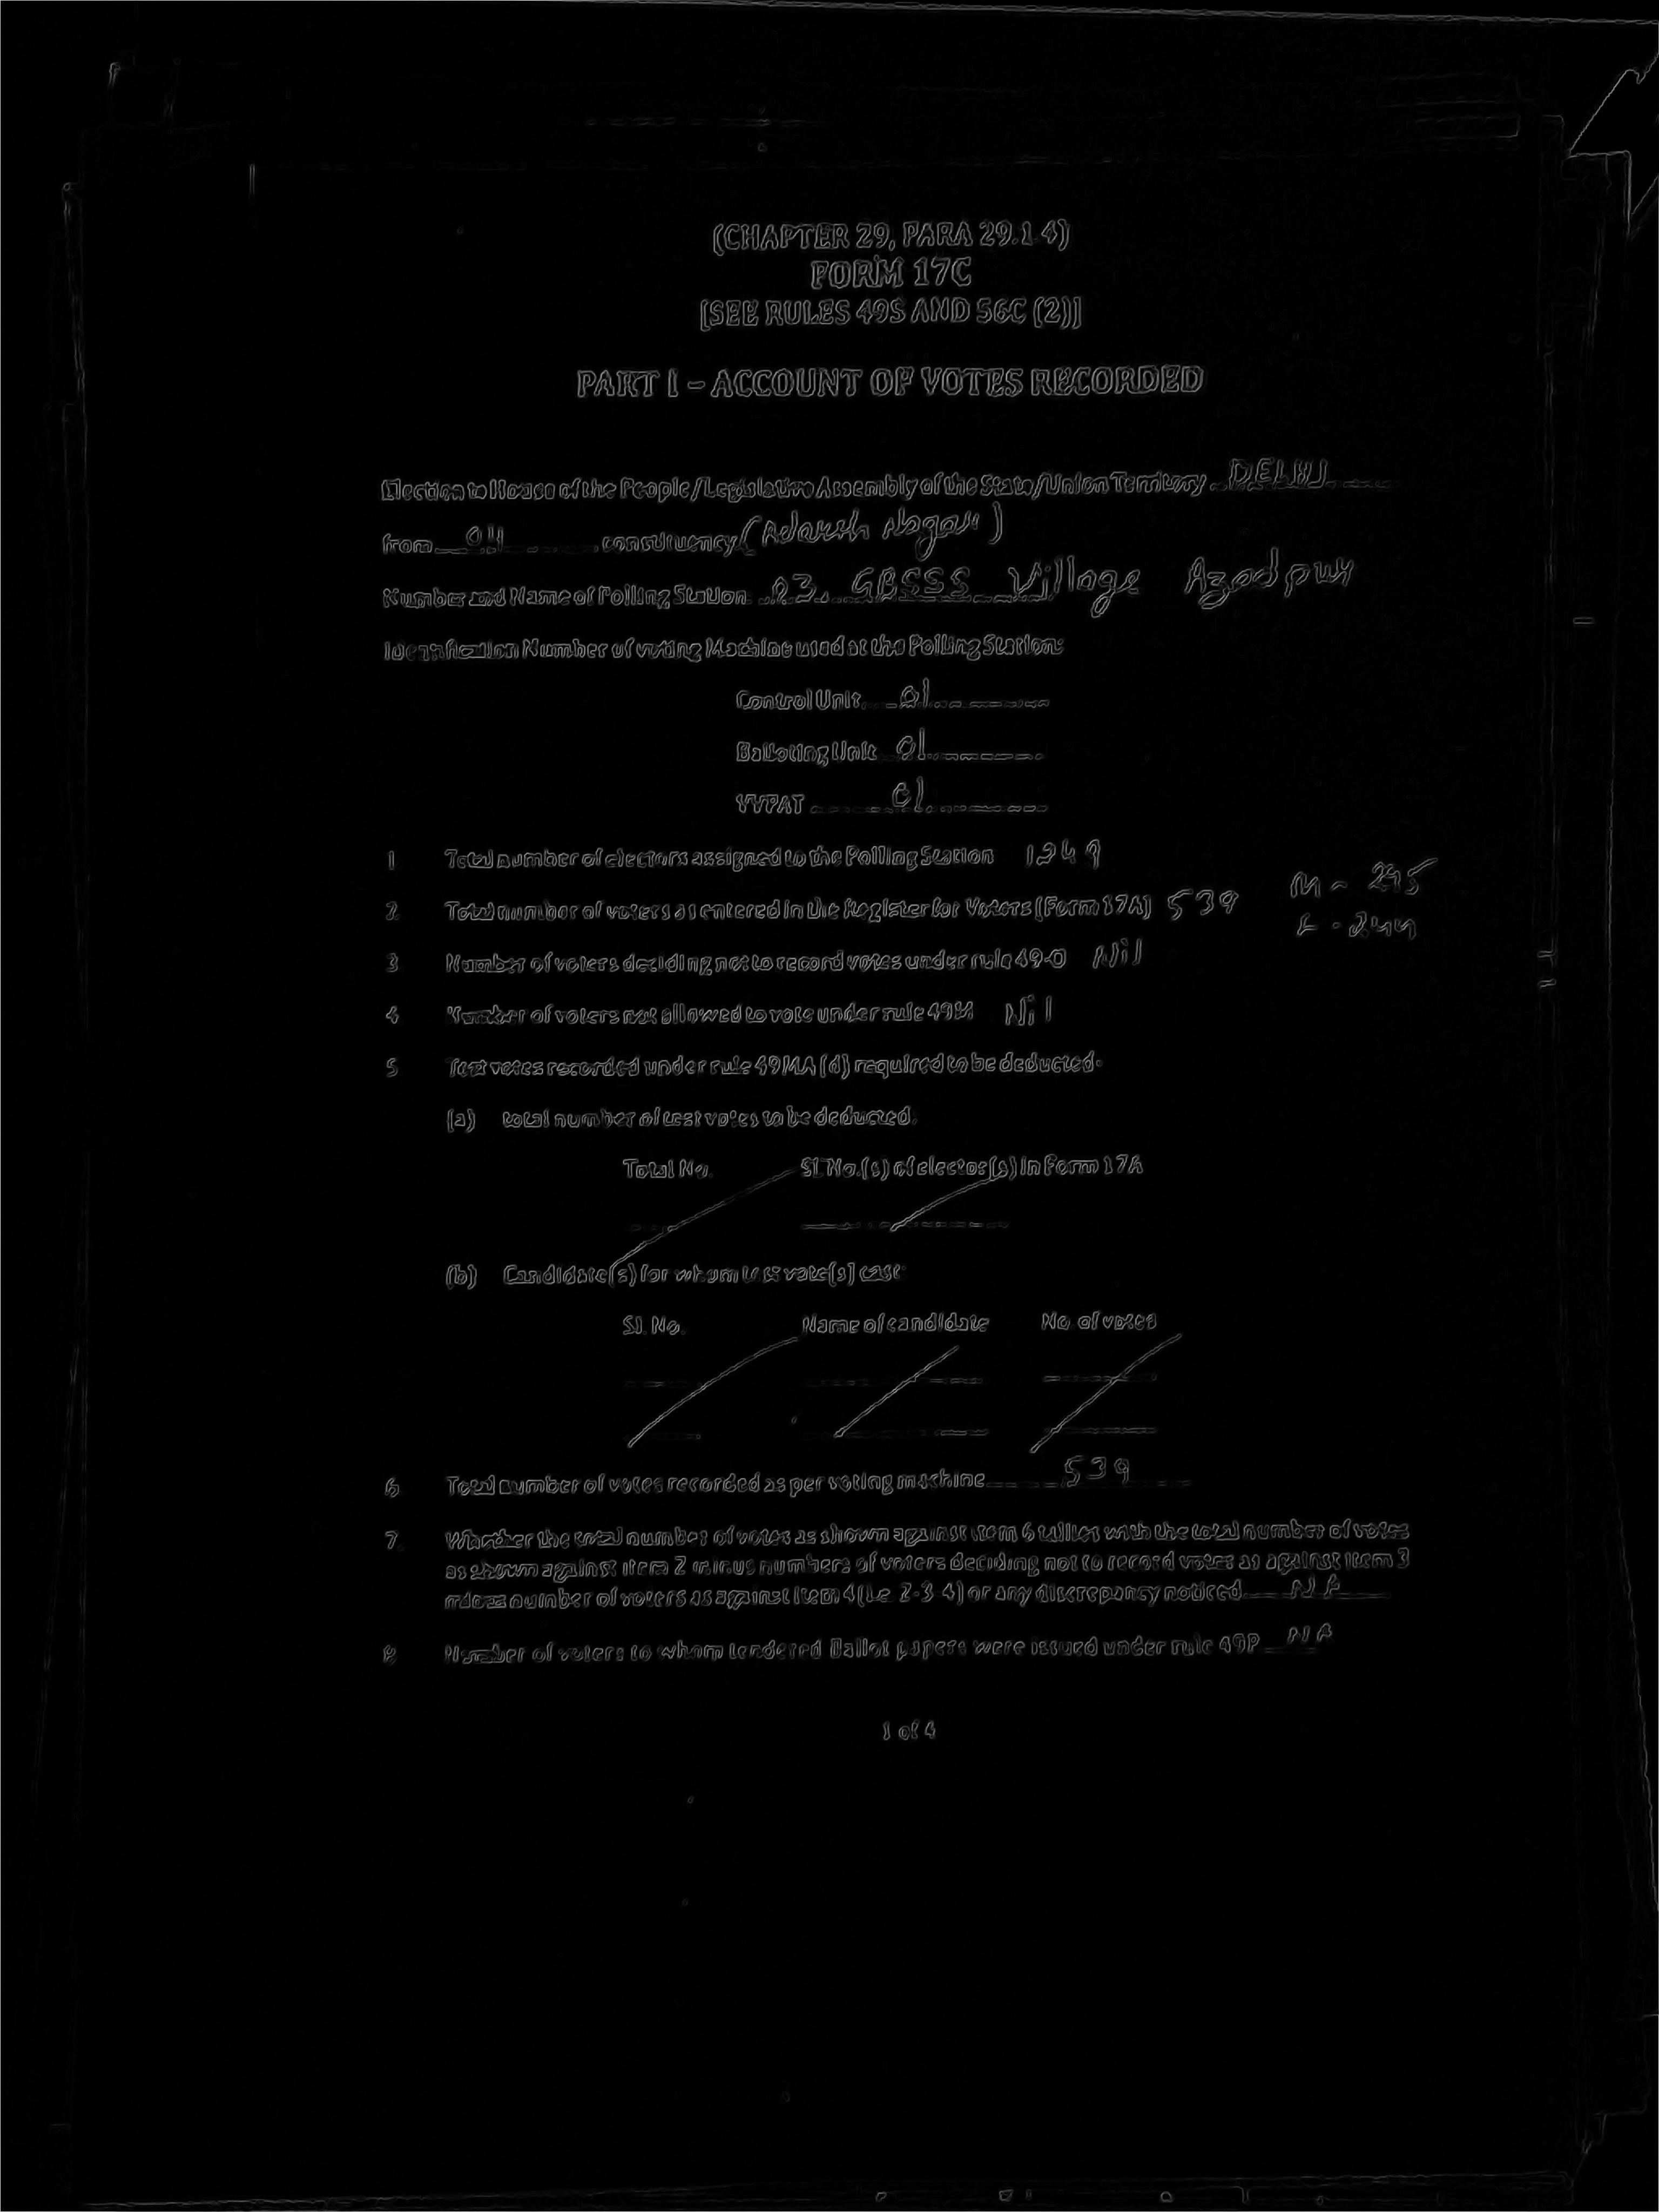 (CHAPTER 29, PARA 29.1.4)
FORM 17C
[SEE RULES 49S AND 56C (2)]
PART I – ACCOUNT OF VOTES RECORDED
Election to House of the People/Legislative Assembly of the State/Union Territory DELHI
from 04 constituency (Adarsh Nagar)
Number and Name of Polling Station 23, GBSSS Village Azadpur
Identification Number of voting Machine used at the Polling Station:
Control Unit 01
Balloting Unit 01
VVPAT 01
1 Total number of electors assigned to the Polling Station 1249
2. Total number of voters as entered in the Register for Voters (Form 17A) 539 M - 295
F - 244
3 Number of voters deciding not to record votes under rule 49-O Nil
4 Number of voters not allowed to vote under rule 49M Nil
5 Test votes recorded under rule 49MA (d) required to be deducted-
(a) total number of test votes to be deducted.
Total No. Sl. No.(s) of elector(s) in Form 17A
(b) Candidate(s) for whom test vote(s) cast
Sl. No. Name of candidate No. of votes
6 Total number of votes recorded as per voting machine 539
7. Whether the total number of votes as shown against item 6 tallies with the total number of votes
as shown against item 2 minus numbers of voters deciding not to record votes as against item 3
minus number of voters as against item 4 (i.e. 2-3-4) or any discrepancy noticed NA
8 Number of voters to whom tendered Ballot papers were issued under rule 49P NA
1 of 4